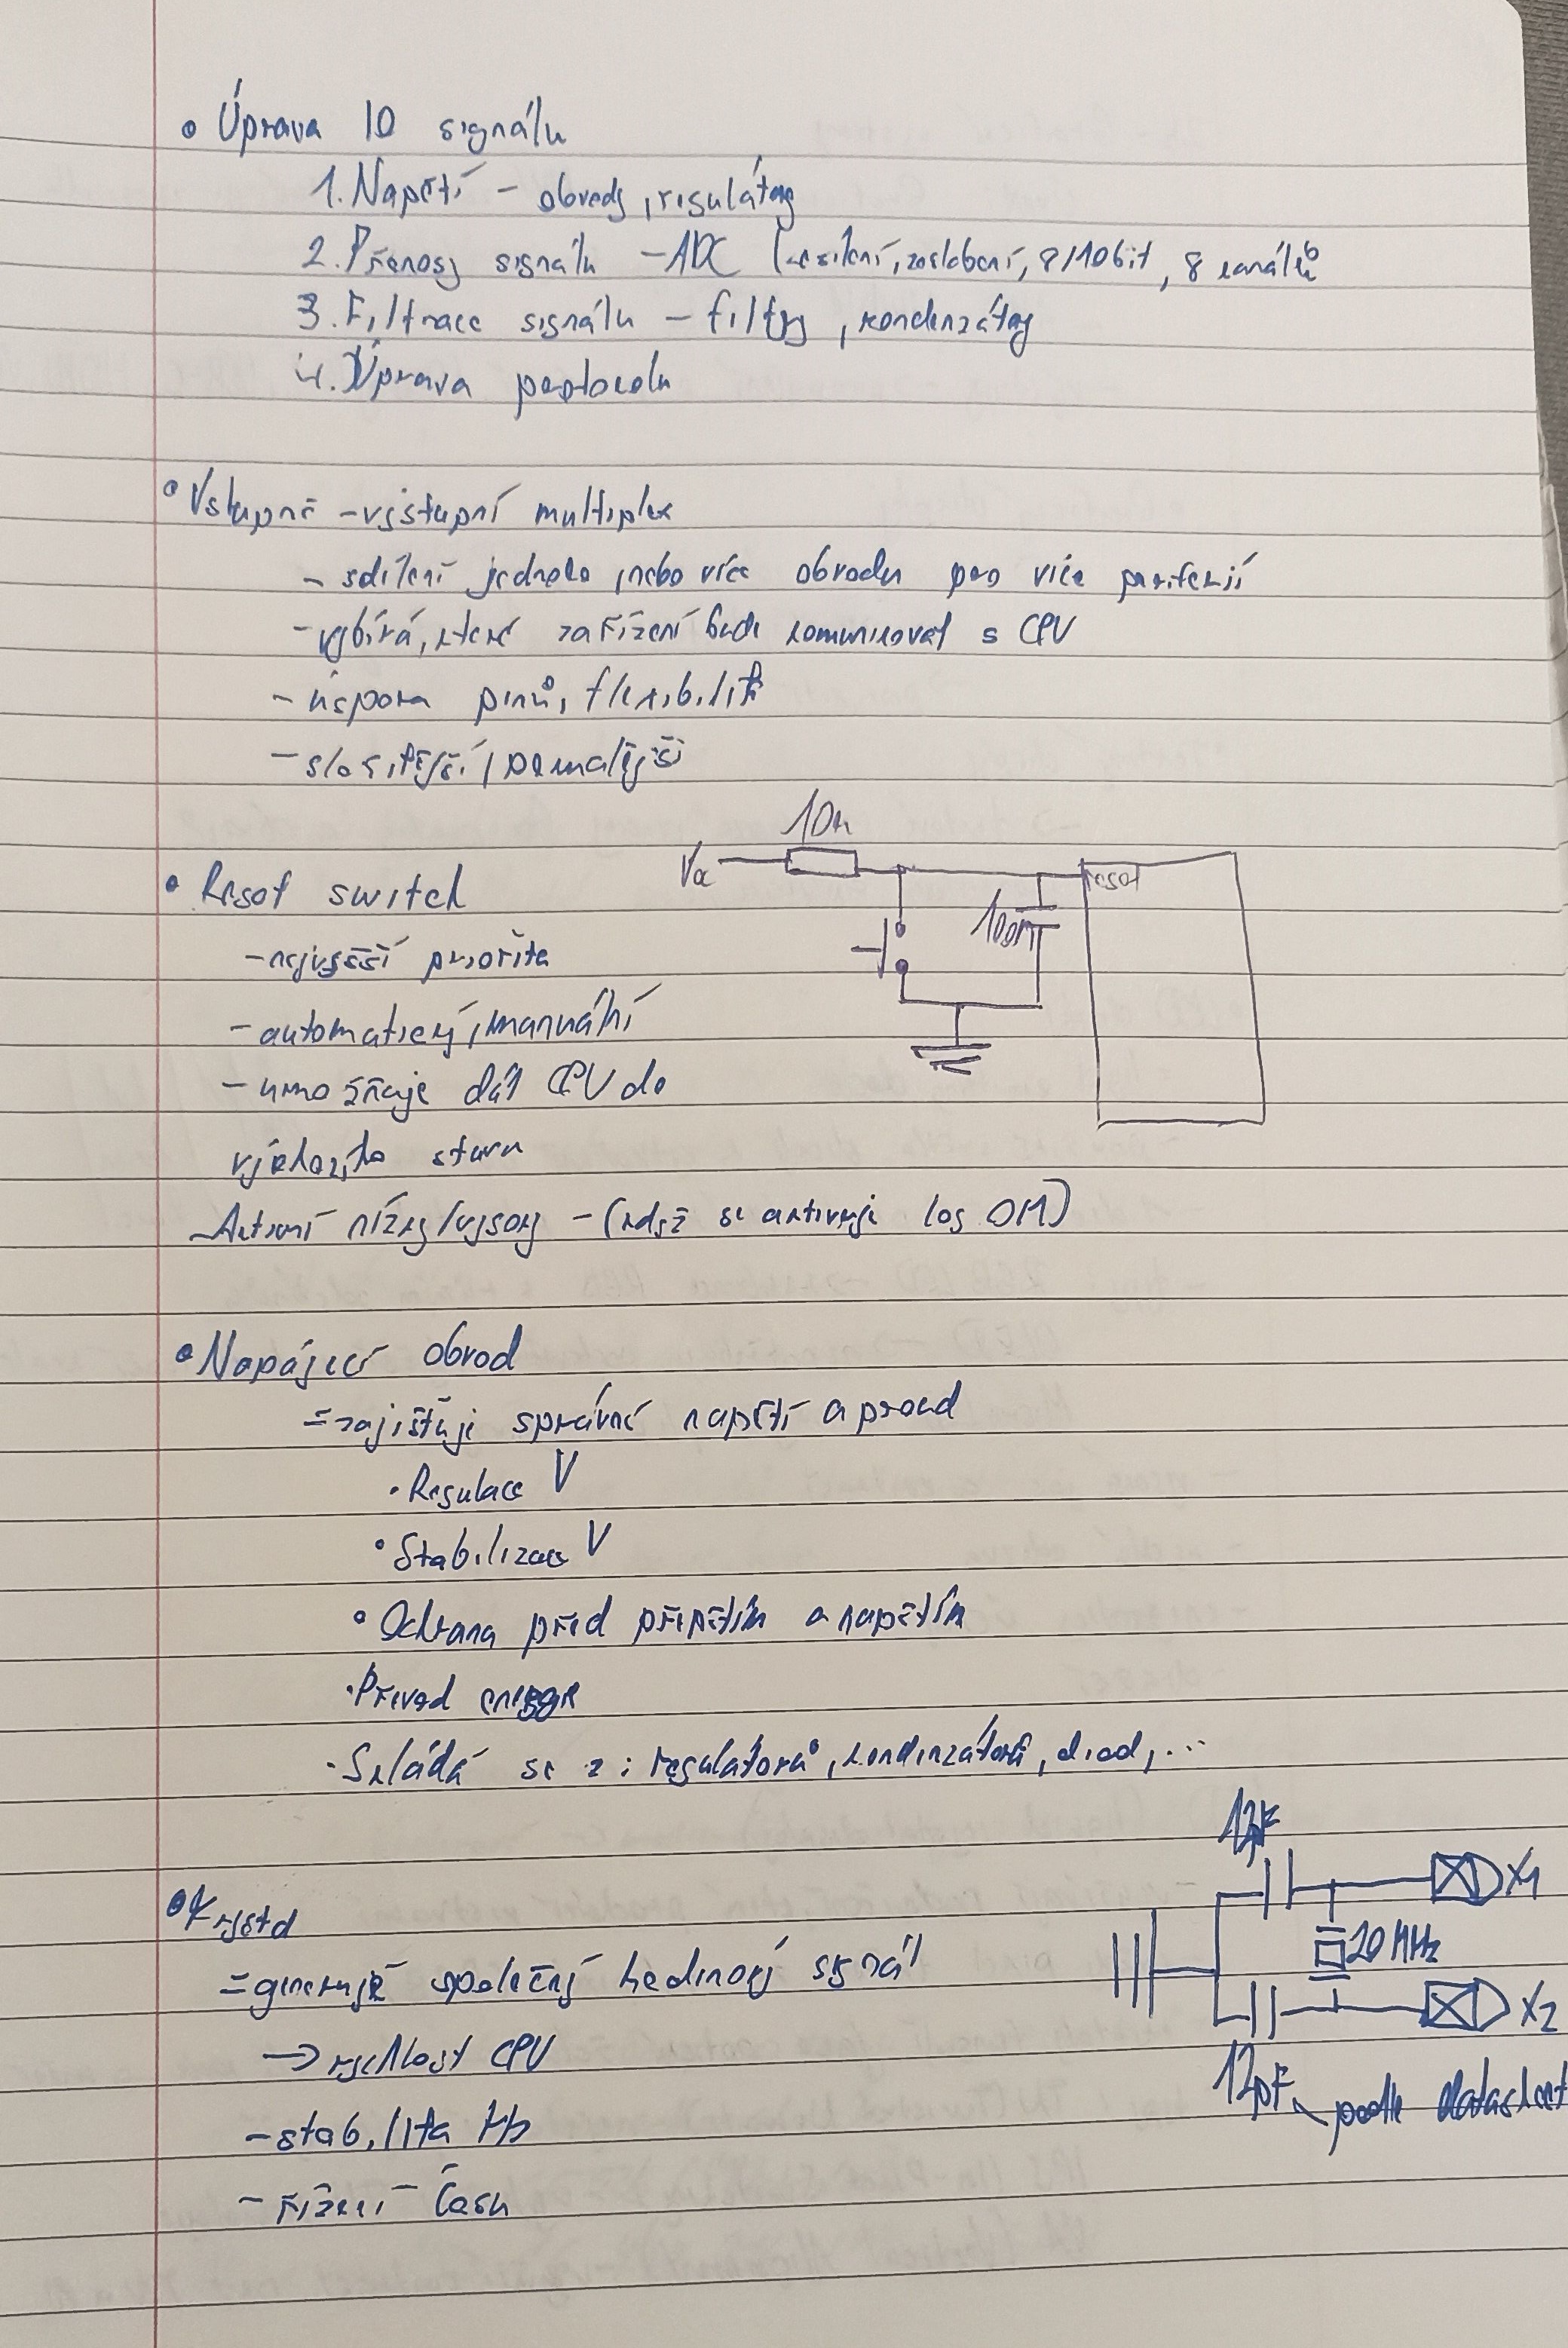 • Úprava IO signálu
1. Napětí - obvody, regulátory
2. Přenosy signálu - ADC (zesílení, zeslabení, 8/10bit, 8 kanálů
3. Filtrace signálu - filtry, kondenzátory
4. Úprava protocolu
• Vstupně-výstupní multiplex
- sdílení jednoho, nebo více obvodu pro více periferií
- vybírá, které zařízení bude komunikovat s CPU
- úspora pinů, flexibilita
- složitější, pomalejší
10k
Vcc
reset
100n
• Reset switch
- nejvyšší priorita
- automatický, manuální
- umožňuje dát CPU do
výchozího stavu
- Aktivní nízký/vysoký - (když se aktivuje log 0/1)
• Napájecí obvod
= zajištuje správné napětí a proud
• Regulace V
• Stabilizace V
• Ochrana před přepětím a napětím
• Převod energie
• Skládá se z: regulátorů, kondenzátorů, diod, ...
12pF
X1
20MHz
X2
12pF
podle datasheet
• Krystal
= generuje společný hodinový signál
→ rychlost CPU
- stabilita Hz
- řízení času